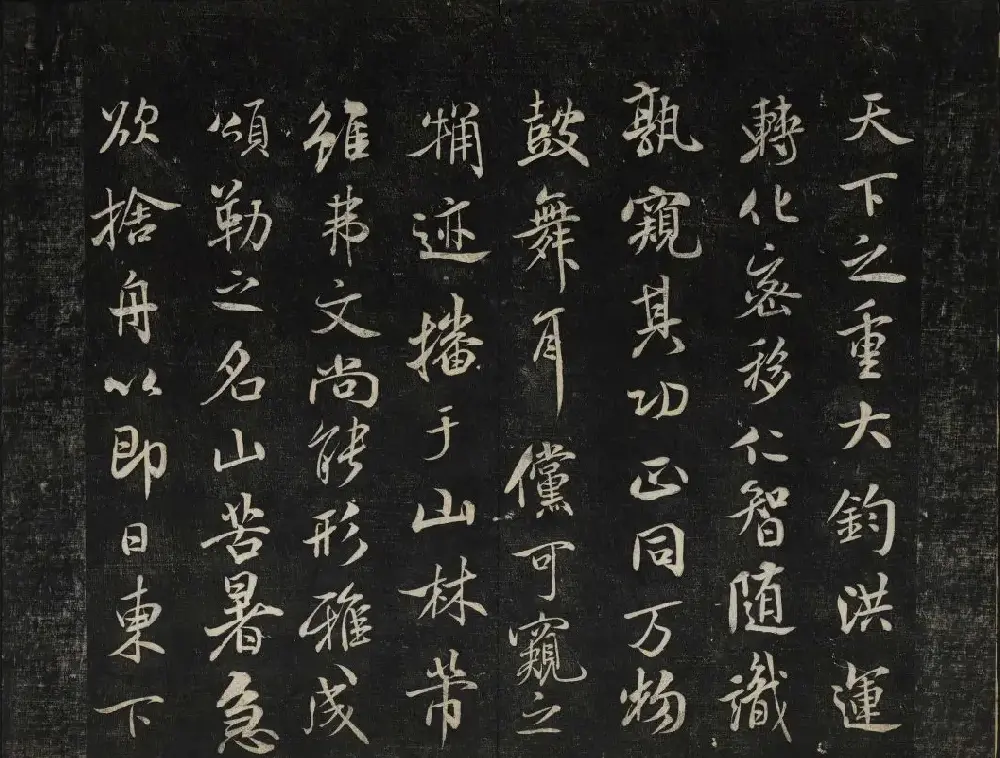 天下之重大鈞洪運
轉化密移仁智随識
孰窺其功正同万物
鼓舞耳儻可窺之
粗迹播于山林芾
雖弗文尚能形雅成
頌勒之名山苦暑急
欲捨舟以即日東下